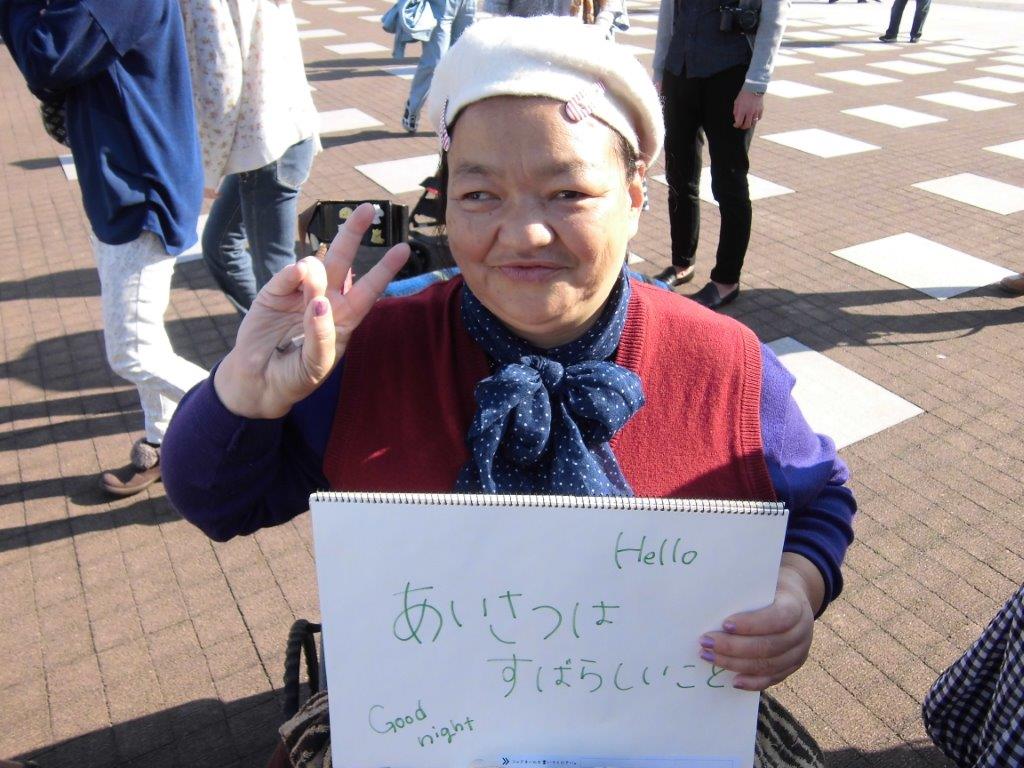 Hello
あいさつは
すばらしいこと
Good
night